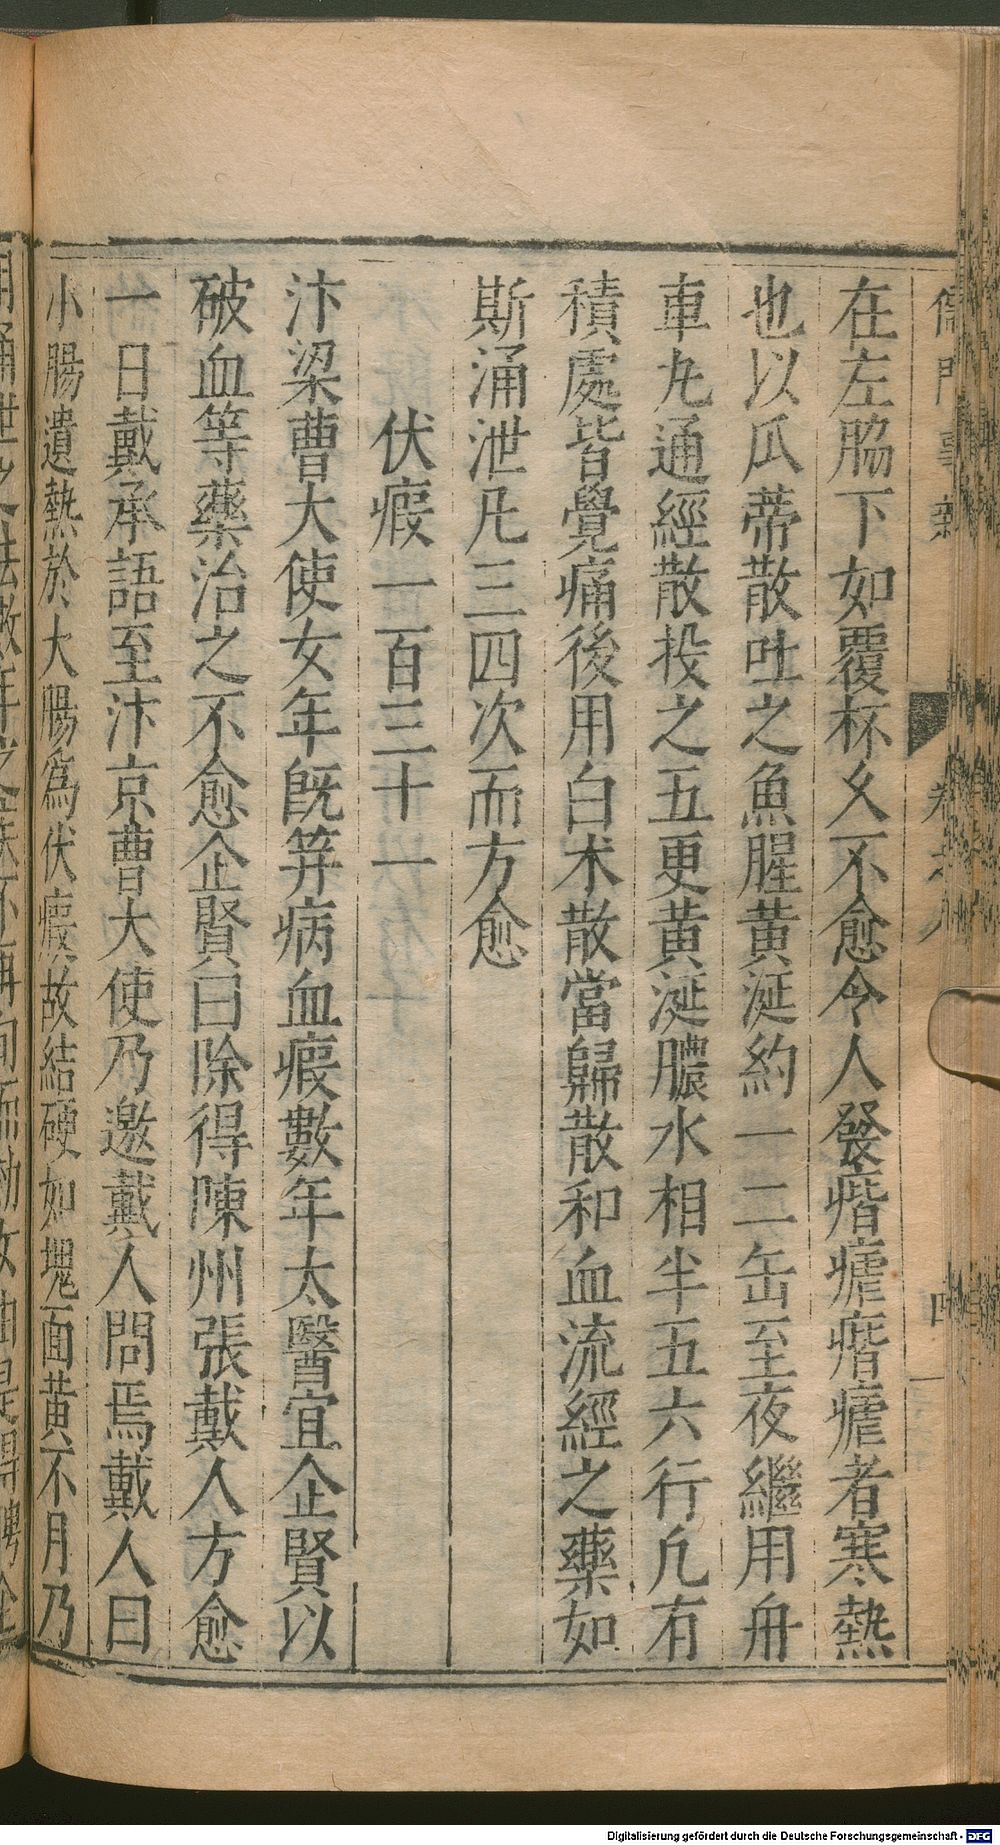 儒門事親
在左脇下如覆杯久不愈令人發痎瘧痎瘧者寒熱
也以瓜蒂散吐之魚腥黃涎約一二缶至夜繼用舟
車丸通經散投之五更黃涎膿水相半五六行凡有
積處皆覺痛後用白术散當歸散和血流經之藥如
斯涌泄凡三四次而方愈
伏瘕一百三十一
汴梁曹大使女年既笄病血瘕數年太醫宜企賢以
破血等藥治之不愈企賢曰除得陳州張戴人方愈
一日戴承語至汴京曹大使乃邀戴人問焉戴人曰
小腸遺熱於大腸為伏瘕故結硬如塊面黃不月乃
Digitalisierung gefördert durch die Deutsche Forschungsgemeinschaft - DFG